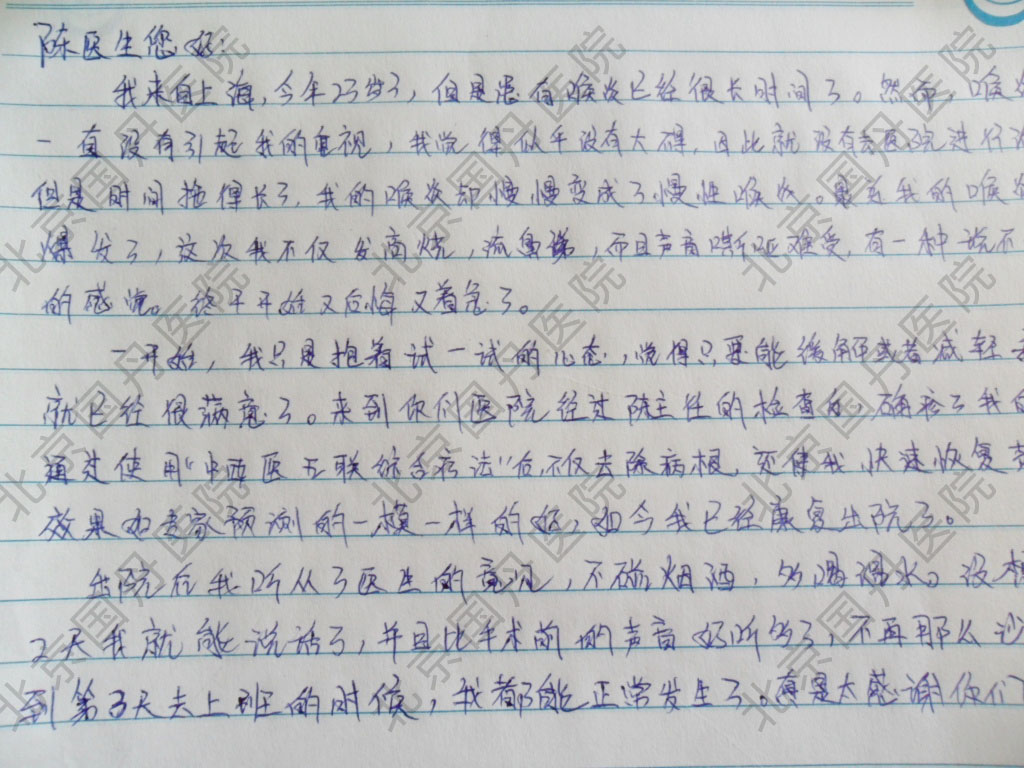 陈医生您好:
我来自上海,今年23岁了,但是患有喉炎已经很长时间了。然而,喉炎
一直没有引起我的重视,我觉得似乎没有大碍,因此就没有去医院进行治
但是时间拖得长了,我的喉炎却慢慢变成了慢性喉炎。最近我的喉炎
爆发了,这次我不仅发高烧,流鼻涕,而且声音嘶哑难受,有一种说不
的感觉。终于开始又后悔又着急了。
一开始,我只是抱着试一试的心态,觉得只要能缓解或者减轻
就已经很满意了。来到你们医院经过陈主任的检查后,确诊了我的
通过使用“中西医五联综合疗法”后,不仅去除病根,还使我快速恢复
效果如专家预测的一模一样的好,如今我已经康复出院了。
出院后我听从了医生的意见,不碰烟酒,多喝温水。没想
2天我就能说话了,并且比手术前的声音好听多了,不再那么沙
到第3天去上班的时候,我都能正常发生了。真是太感谢你们了
北京国丹医院